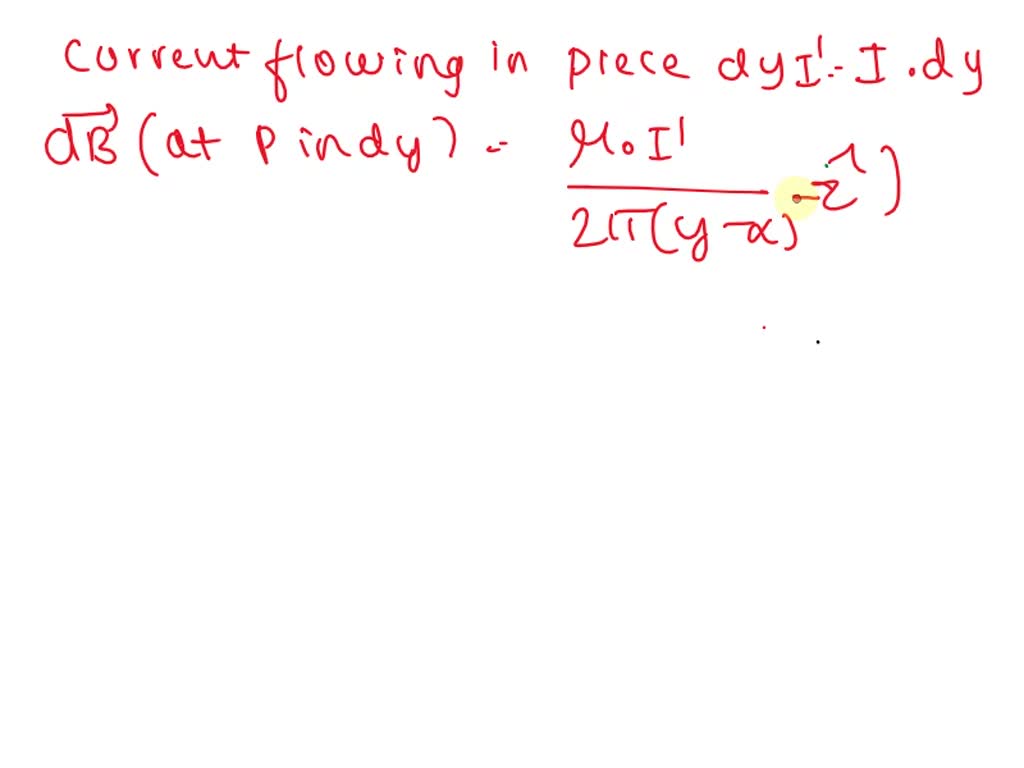 current flowing in piece dy I' = I . dy
d\vec{B} (at P in dy) = \frac{μ₀I'}{2π(y-x)} -\hat{z})